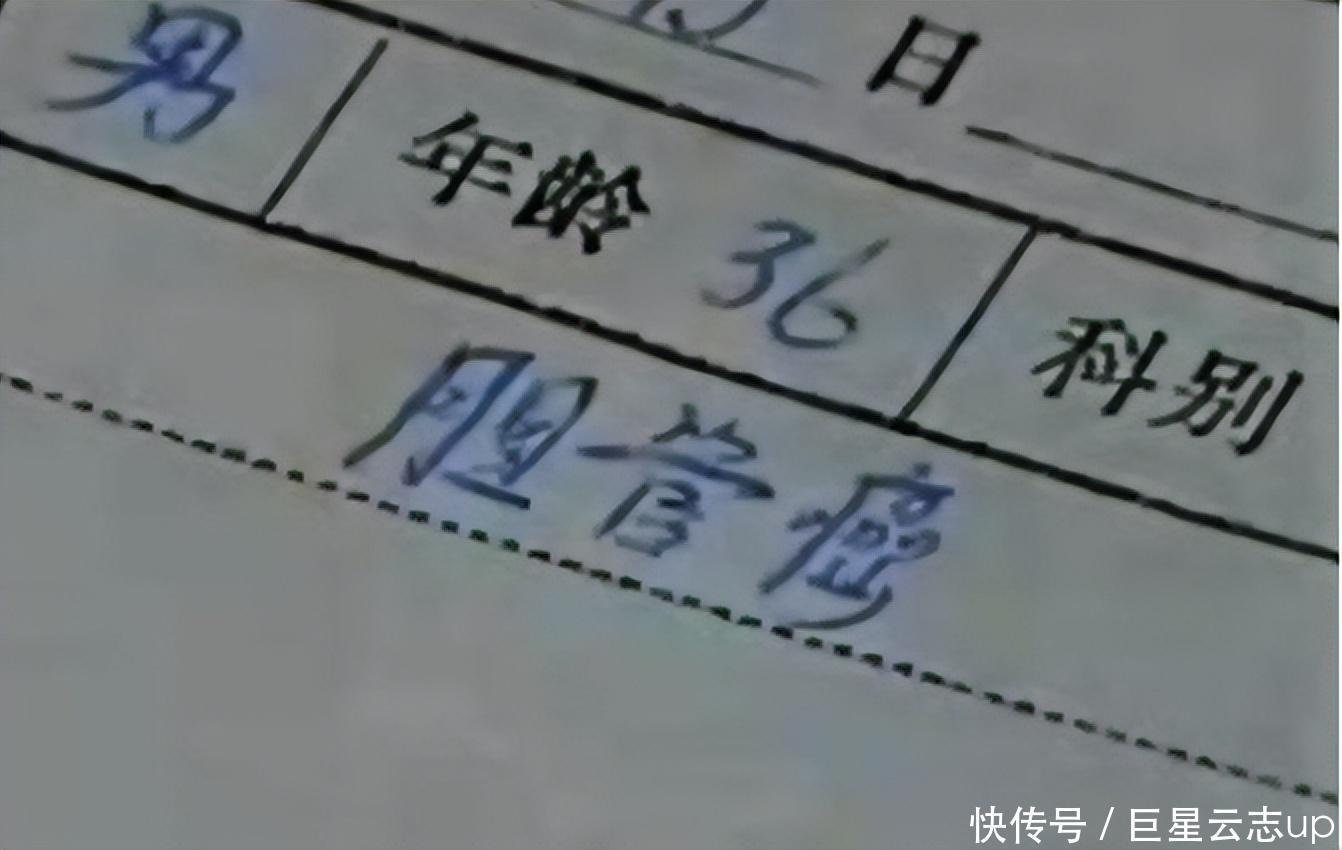 日
男 年龄 36 科别
胆管癌
快传号 / 巨星云志up